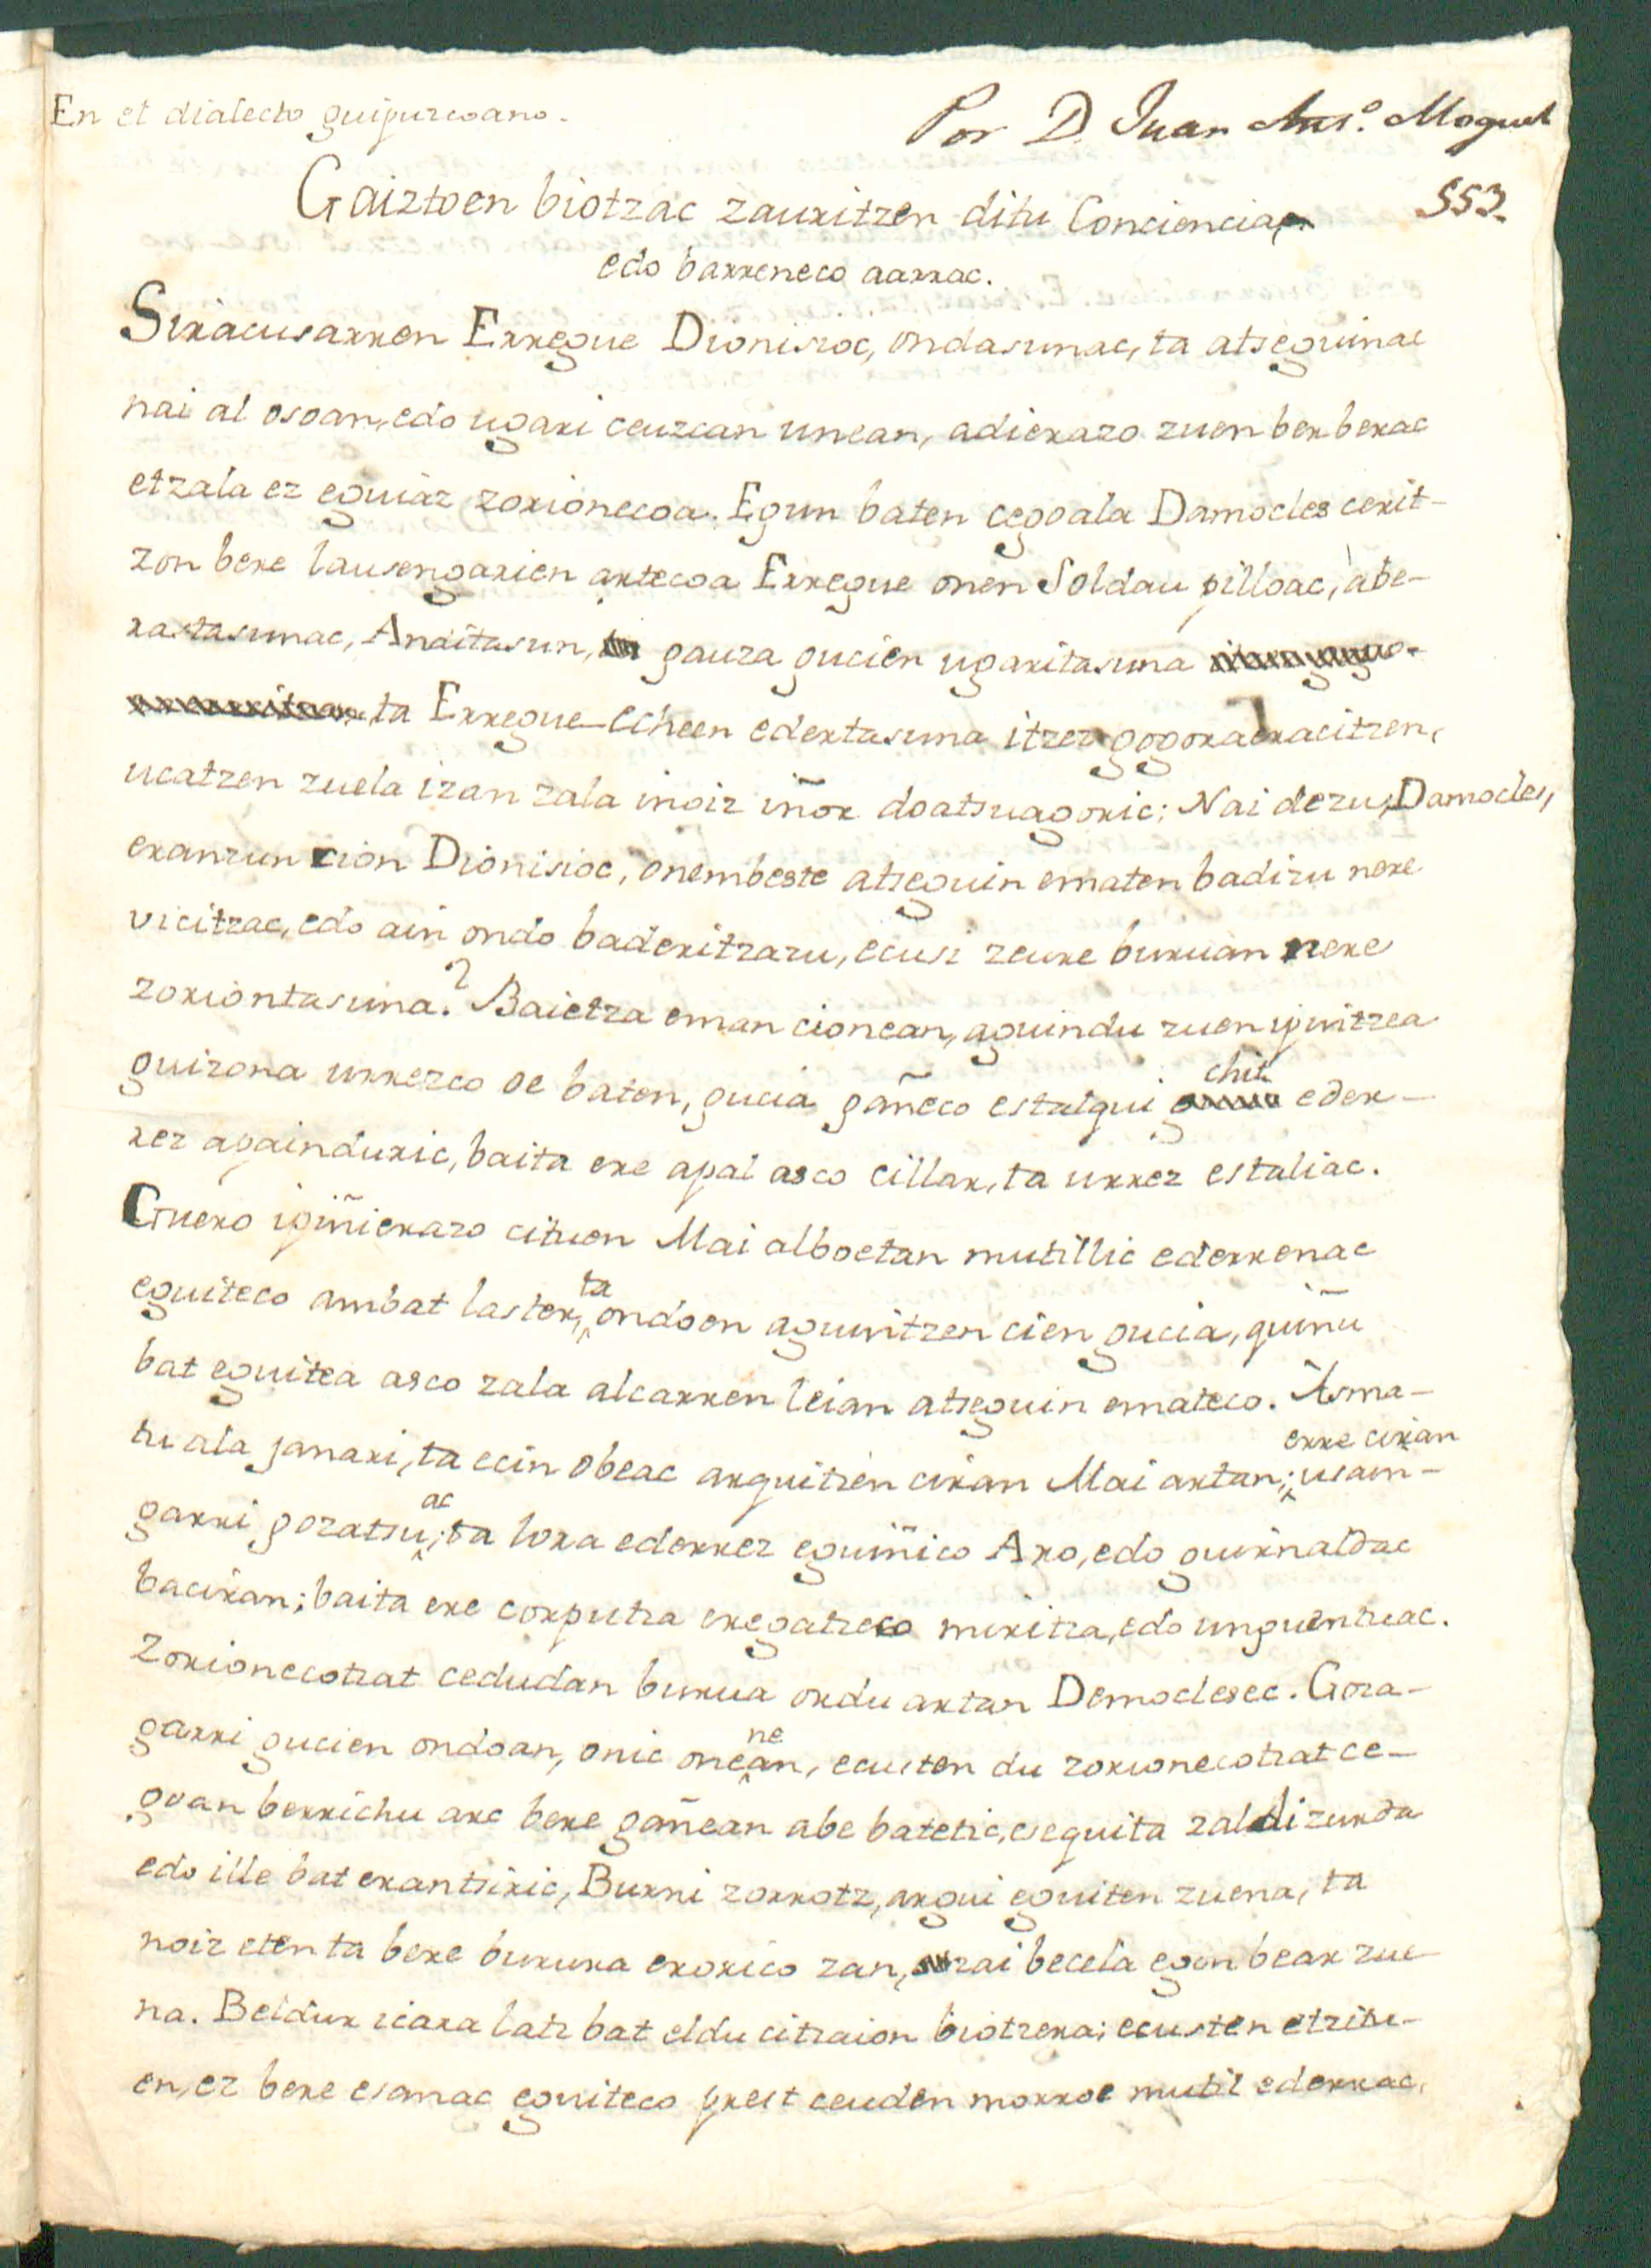 En el dialecto guipuzcoano.
Por D. Juan Ant.º Moguel
553.
Gaiztoen biotzac zauritzen ditu Conciencia,
edo barreneco aarrac.
Siracusarren Erregue Dionisioc, ondasunac, ta atseguinac
nai al osoan, edo ugari ceuzcan unean, adierazo zuen berberac
etzala ez eguiaz zorionecoa. Egun baten cegoala Damocles cerit-
zon bere lausengarien artecoa Erregue onen Soldau pilloac, abe-
rastasunac, Anditasun, gauza gucien ugaritasuna
ta Erregue-echeen edertasuna itzez gogoraeracitzen,
ucatzen zuela izan zala inoiz iñor doatsuagoric: Nai dezu, Damocles,
eranzun cion Dionisioc, onembeste atseguin ematen badizu nere
vicitzac, edo ain ondo baderitzazu, ecusi zeure buruan nere
zoriontasuna? Baietza eman cionean, aguindu zuen ipintzea
guizona urrezco oe baten, gucia gañeco estalqui chit eder-
rez apainduric, baita ere apal asco cillar, ta urrez estaliac.
Guero ipiñierazo cituen Mai alboetan mutillic ederrenac
eguiteco ambat laster, ta ondoen aguintzen cien gucia, quiñu
bat eguitea asco zala alcarren leian atseguin emateco. Asma-
tu ala janari, ta ecin obeac arquitzen ciran Mai artan; erre ciran usain-
garri gozatsuac; ta lora ederrez eguiñico Aro, edo guirnaldac
baciran; baita ere corputza eregatzeco miritza, edo unguentuac.
Zorionecotzat cedudan burua ordu artan Democlesec. Goza-
garri gucien ondoan, onic onenean, ecusten du zorionecotzat ce-
goan berrichu arc bere gañean abe batetic, esequita zaldi zurda
edo ille bat erantsiric, Burni zorrotz, argui eguiten zuena, ta
noiz eten ta bere burura erorico zan, zai becela egon bear zue-
na. Beldur icara latz bat eldu citzaion biotzera; ecusten etzitu-
en, ez bere esanac eguiteco prest ceuden morroe mutil ederrac,